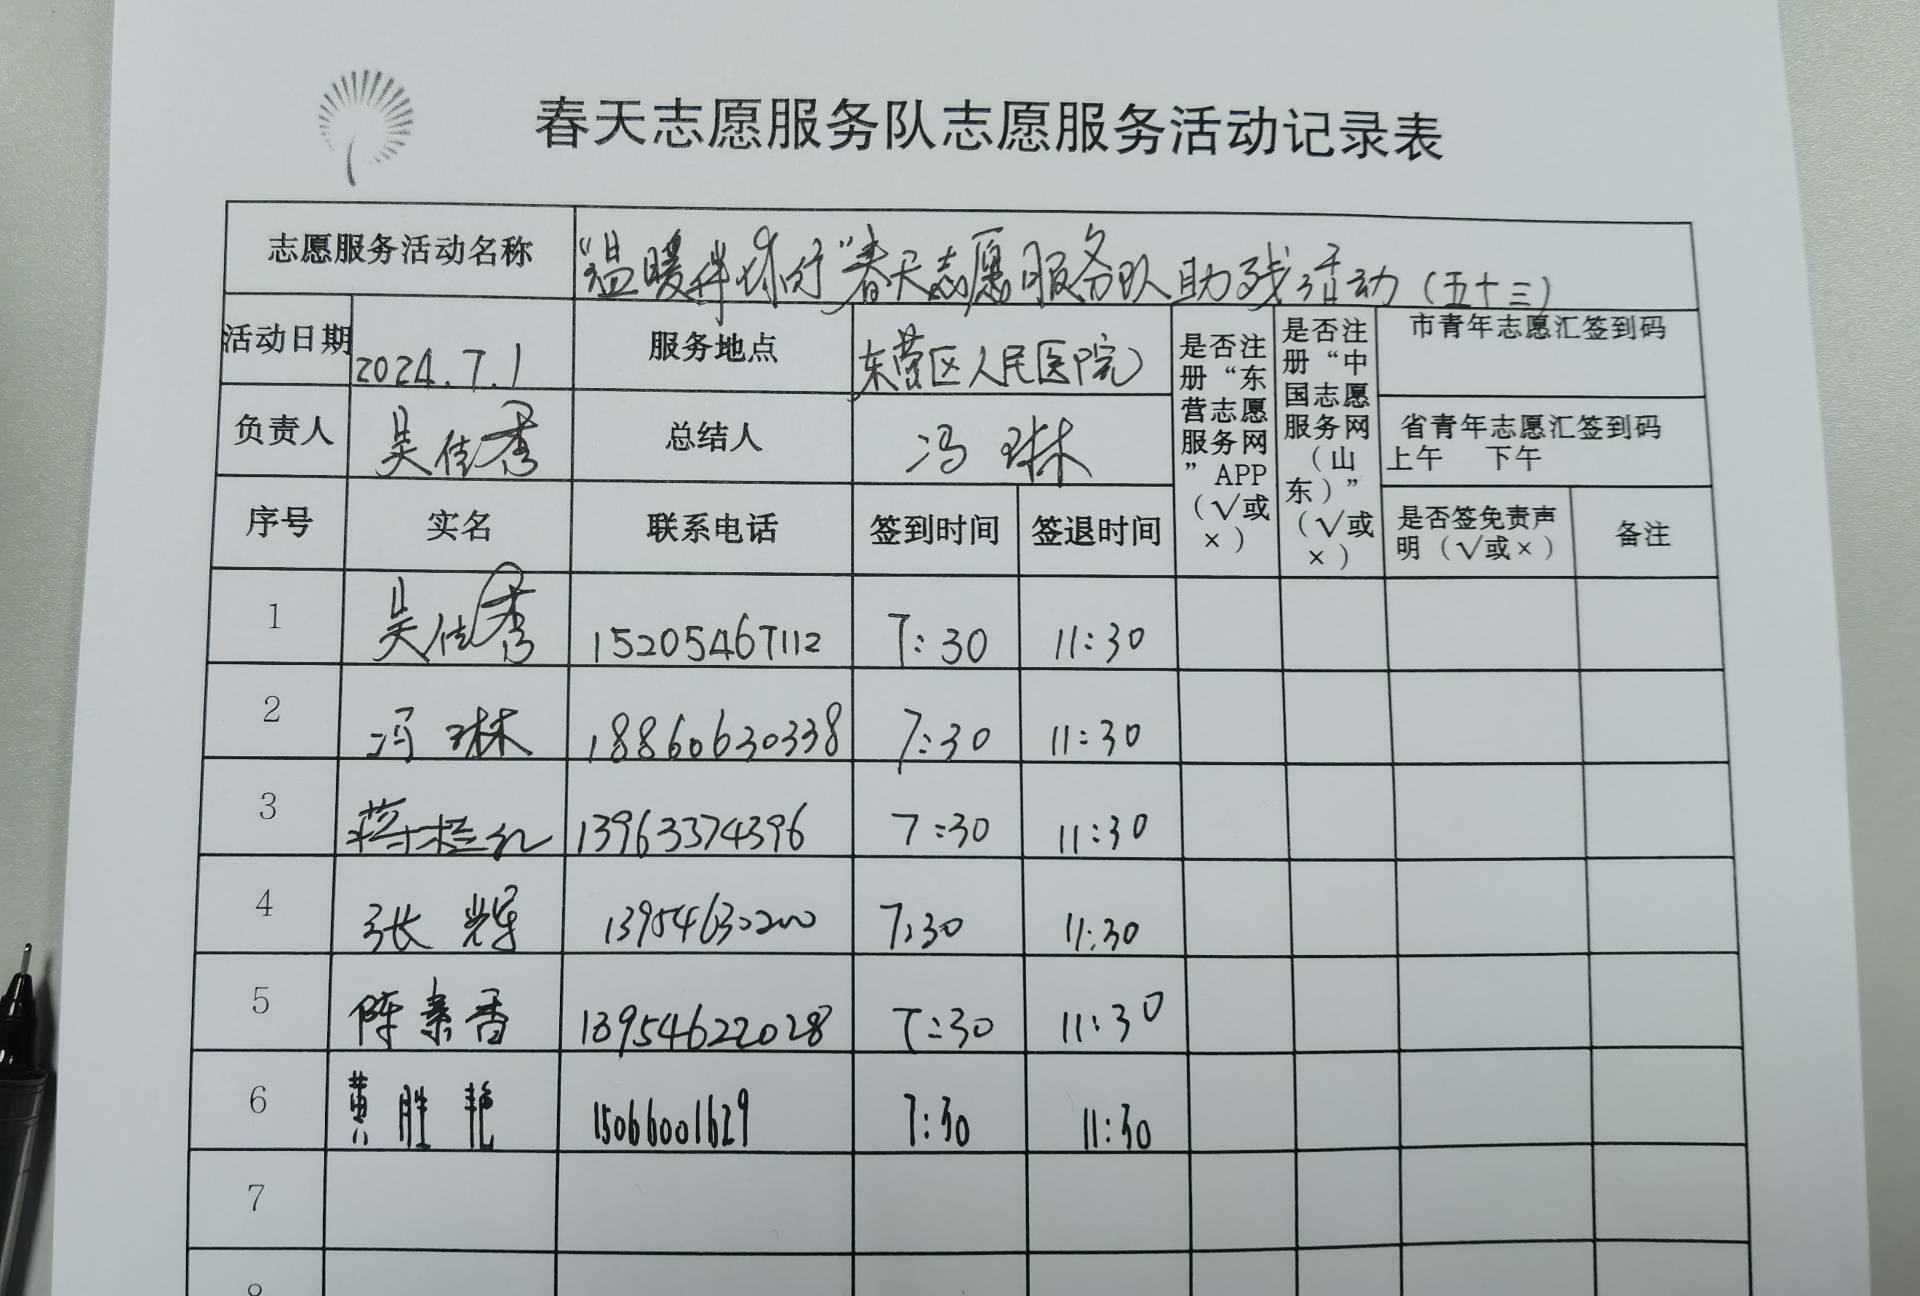 春天志愿服务队志愿服务活动记录表
志愿服务活动名称 “温暖伴你行”春天志愿服务队助残活动（五十三）
活动日期 2024.7.1 服务地点 东营区人民医院 是否注册“东营志愿服务网”APP（√或×） 是否注册“中国志愿服务网（山东）”（√或×） 市青年志愿汇签到码
负责人 吴佳秀 总结人 冯琳 省青年志愿汇签到码
上午 下午
序号 实名 联系电话 签到时间 签退时间 是否签免责声明（√或×） 备注
1 吴佳秀 15205467112 7:30 11:30
2 冯琳 18860630338 7:30 11:30
3 13963374396 7:30 11:30
4 张辉 13954630200 7:30 11:30
5 陈素香 13954622028 7:30 11:30
6 黄胜艳 15066001629 7:30 11:30
7
8